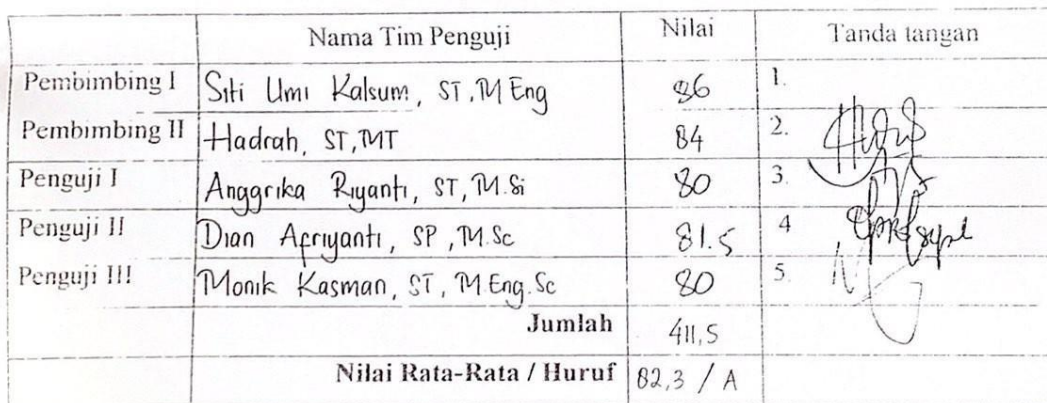 Nama Tim Penguji Nilai Tanda tangan
Pembimbing I Siti Umi Kalsum, ST, M Eng 86 1.
Pembimbing II Hadrah, ST, MT 84 2.
Penguji I Anggrika Riyanti, ST, M.Si 80 3.
Penguji II Dian Apriyanti, SP, M.Sc 81.5 4
Penguji III Monik Kasman, ST, M.Eng.Sc 80 5.
Jumlah 411,5
Nilai Rata-Rata / Huruf 82,3 / A